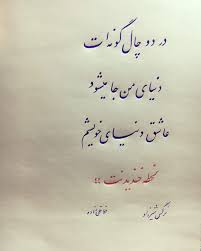 در دو چال گونه ات
دنیای من جا میشود
عاشق دنیای خویشم
لحظه خندیدنت
نرگس شیرزاد